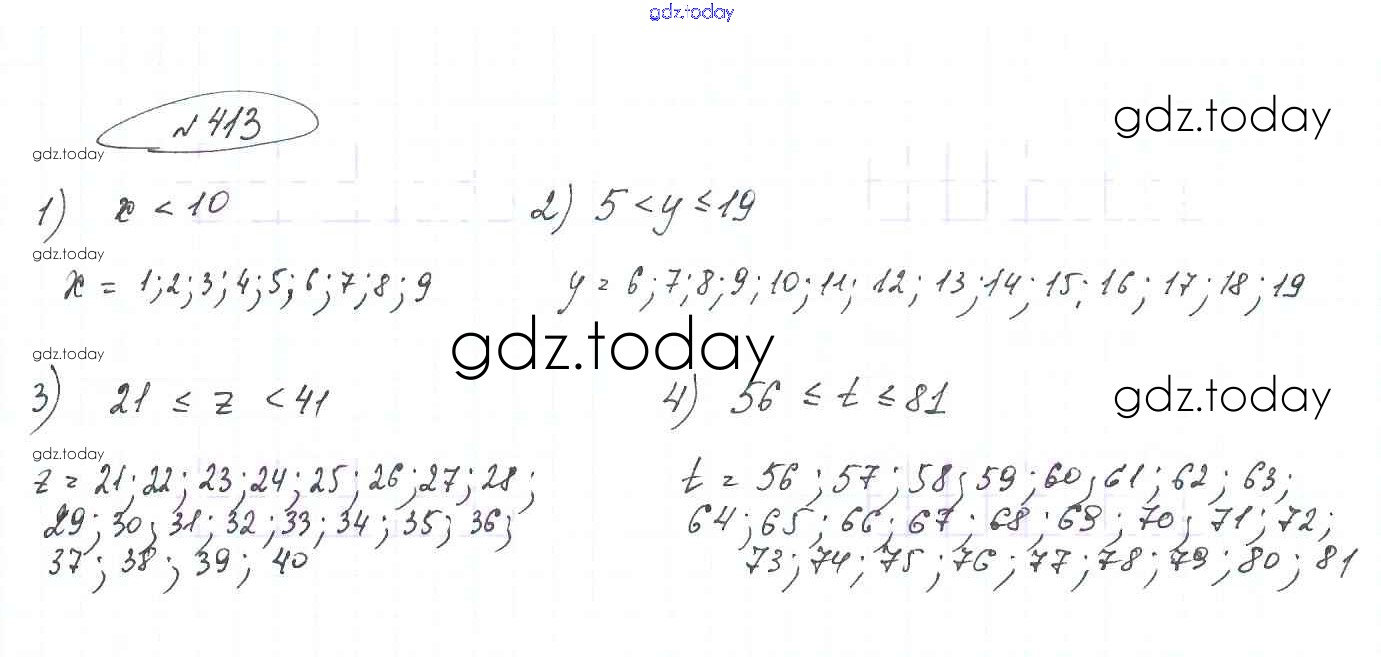 gdz.today
№ 413
gdz.today
gdz.today
1) x < 10
2) 5 < y ≤ 19
gdz.today
x = 1; 2; 3; 4; 5; 6; 7; 8; 9
y = 6; 7; 8; 9; 10; 11; 12; 13; 14; 15; 16; 17; 18; 19
gdz.today
gdz.today
3) 21 ≤ z < 41
4) 56 ≤ t ≤ 81
gdz.today
gdz.today
z = 21; 22; 23; 24; 25; 26; 27; 28;
29; 30; 31; 32; 33; 34; 35; 36;
37; 38; 39; 40
t = 56; 57; 58; 59; 60; 61; 62; 63;
64; 65; 66; 67; 68; 69; 70; 71; 72;
73; 74; 75; 76; 77; 78; 79; 80; 81